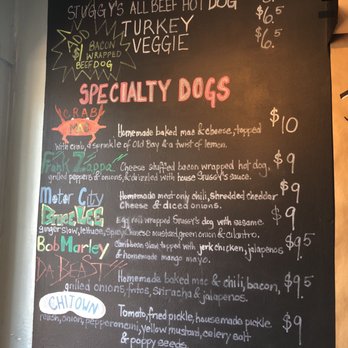 STUGGY'S ALL BEEF HOT DOG $6.5
TURKEY $6.5
VEGGIE $6.5
ADD $1 BACON WRAPPED BEEF DOG
SPECIALTY DOGS
CRAB MAC $10
Homemade baked mac & cheese, topped
with crab, a sprinkle of Old Bay & a twist of lemon.
Frank Zappa Cheese stuffed bacon wrapped hot dog, $9
grilled peppers & onions, & drizzled with house Stuggy's sauce.
Motor City Homemade meat-only chili, shredded cheddar $9
Cheese & diced onions.
Bruce Lee Egg roll wrapped Stuggy's dog with sesame $9
ginger slaw, lettuce, spicy Chinese mustard, green onion & cilantro.
Bob Marley Caribbean slaw, topped with jerk chicken, jalapenos $9.5
& homemade mango mayo.
DA BEAST
Homemade baked mac & chili, bacon, $9.5
grilled onions, fritos, sriracha & jalapenos.
CHITOWN
Tomato, fried pickle, house made pickle $9
relish, onion, pepperoncini, yellow mustard, celery salt
& poppy seeds.